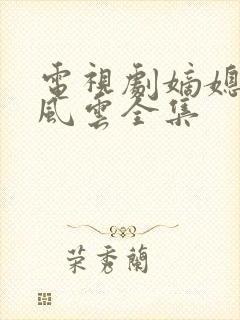 電視劇嫡媳
風雲全集
荣秀蘭